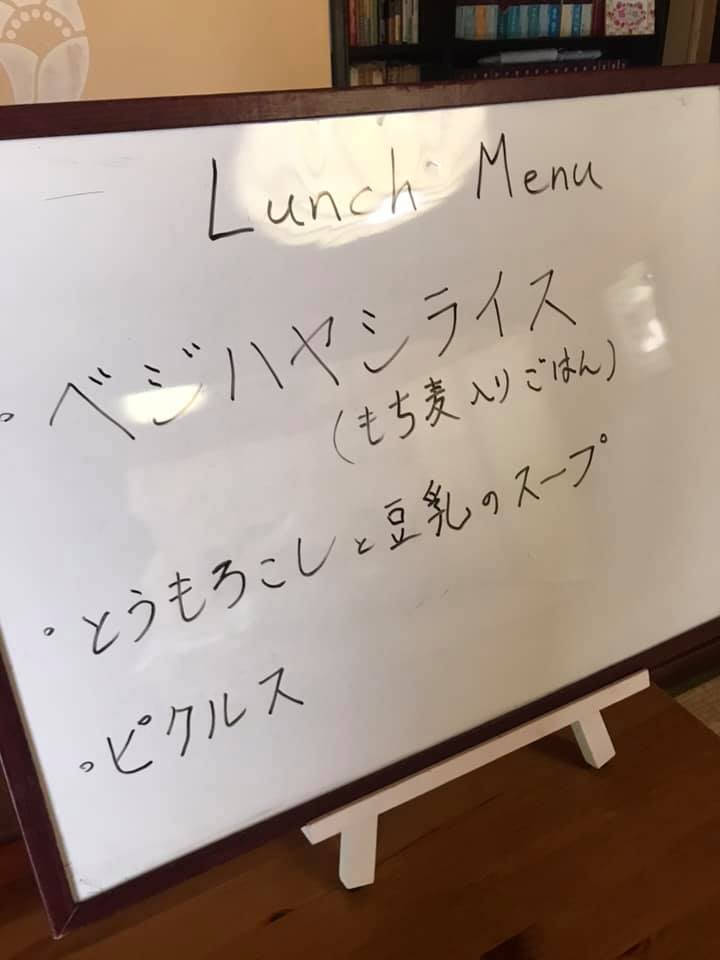 Lunch Menu
。ベジハヤシライス
(もち麦入りごはん)
。とうもろこしと豆乳のスープ
。ピクルス